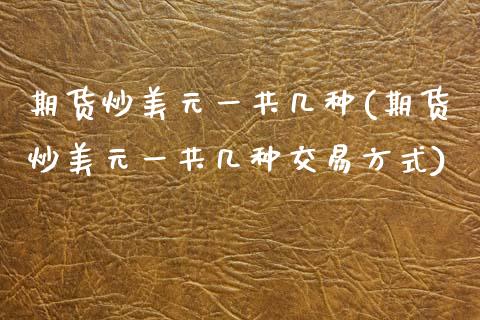 期货炒美元一共几种(期货
炒美元一共几种交易方式)